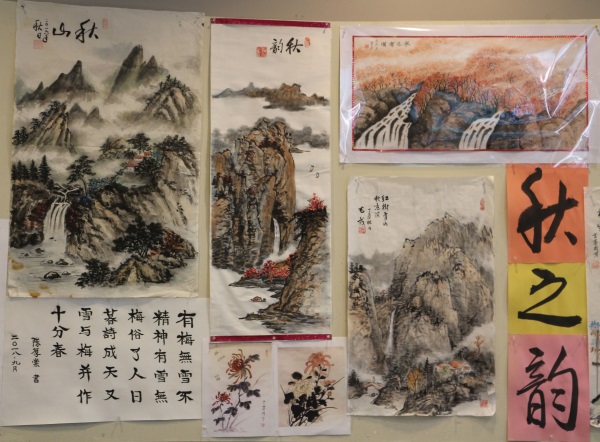 秋山
秋日
秋韵
紅樹青山
有梅無雪不
精神有雪無
梅俗了人日
暮詩成天又
雪与梅并作
十分春
書
二〇一八九月
秋
之
韵